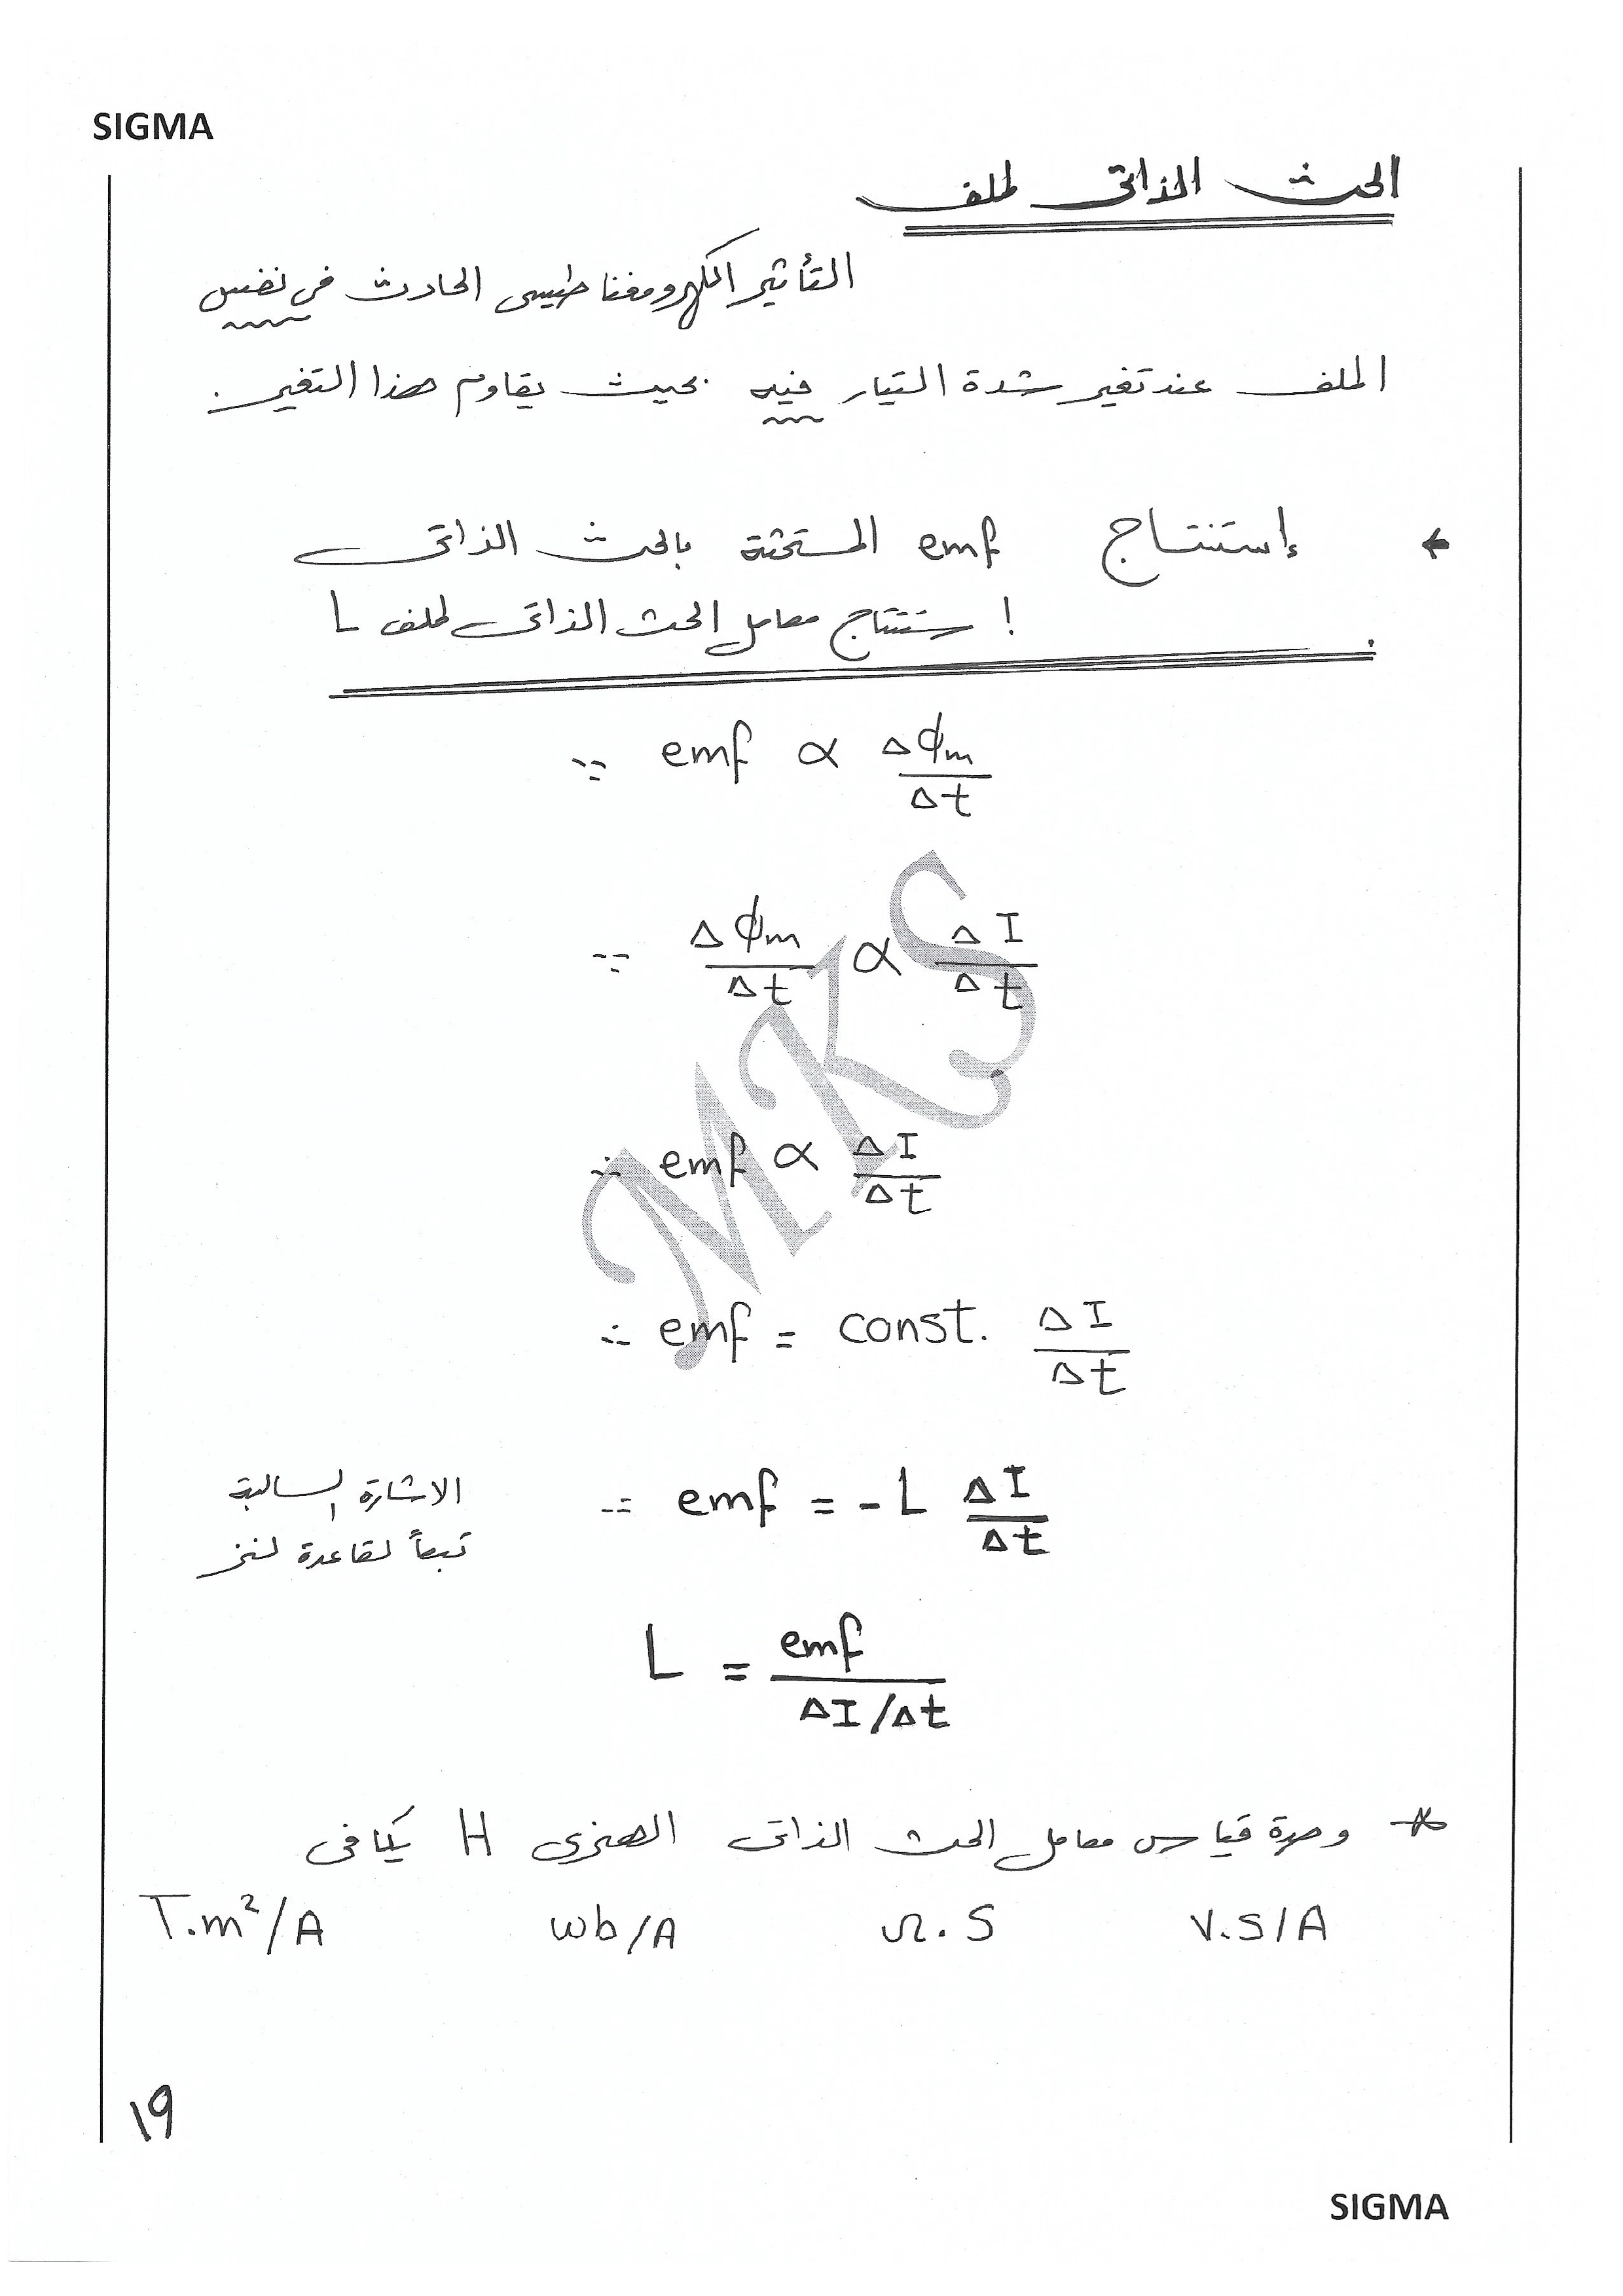 SIGMA
الحث الذاتى لملف
التأثير الكهرومغناطيسى الحادث فى نفس
الملف عند تغير شدة التيار فيه بحيث يقاوم هذا التغير.
← إستنتاج emf المستحثة بالحث الذاتى
إستنتاج معامل الحث الذاتى لملف L
∵ emf ∝ Δϕm / Δt
∵ Δϕm / Δt ∝ ΔI / Δt
∴ emf ∝ ΔI / Δt
∴ emf = const. ΔI / Δt
∴ emf = - L ΔI / Δt
الاشارة السالبة
تبعاً لقاعدة لنز
L = emf / ΔI/Δt
* وحدة قياس معامل الحث الذاتى الهنرى H يكافى
V.S/A Ω.S wb/A T.m²/A
MKS
١٩
SIGMA